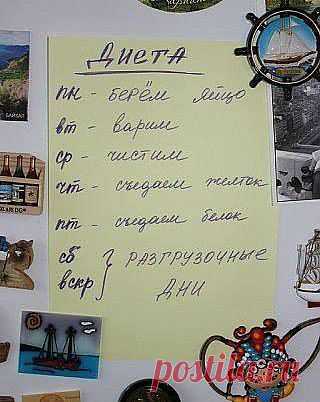 ДИЕТА
пн - берём яйцо
вт - варим
ср - чистим
чт - съедаем желток
пт - съедаем белок
сб } РАЗГРУЗОЧНЫЕ
вскр } ДНИ
БАЙКАЛ
postila.ru